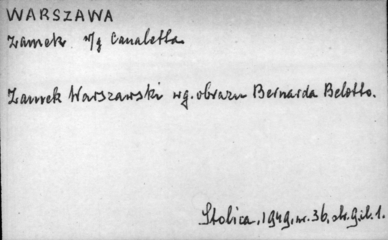 WARSZAWA
Zamek w/g Canaletta
Zamek Warszawski wg. obrazu Bernarda Belotto.
Stolica, 1949, nr. 36, str. 9, il. 1.